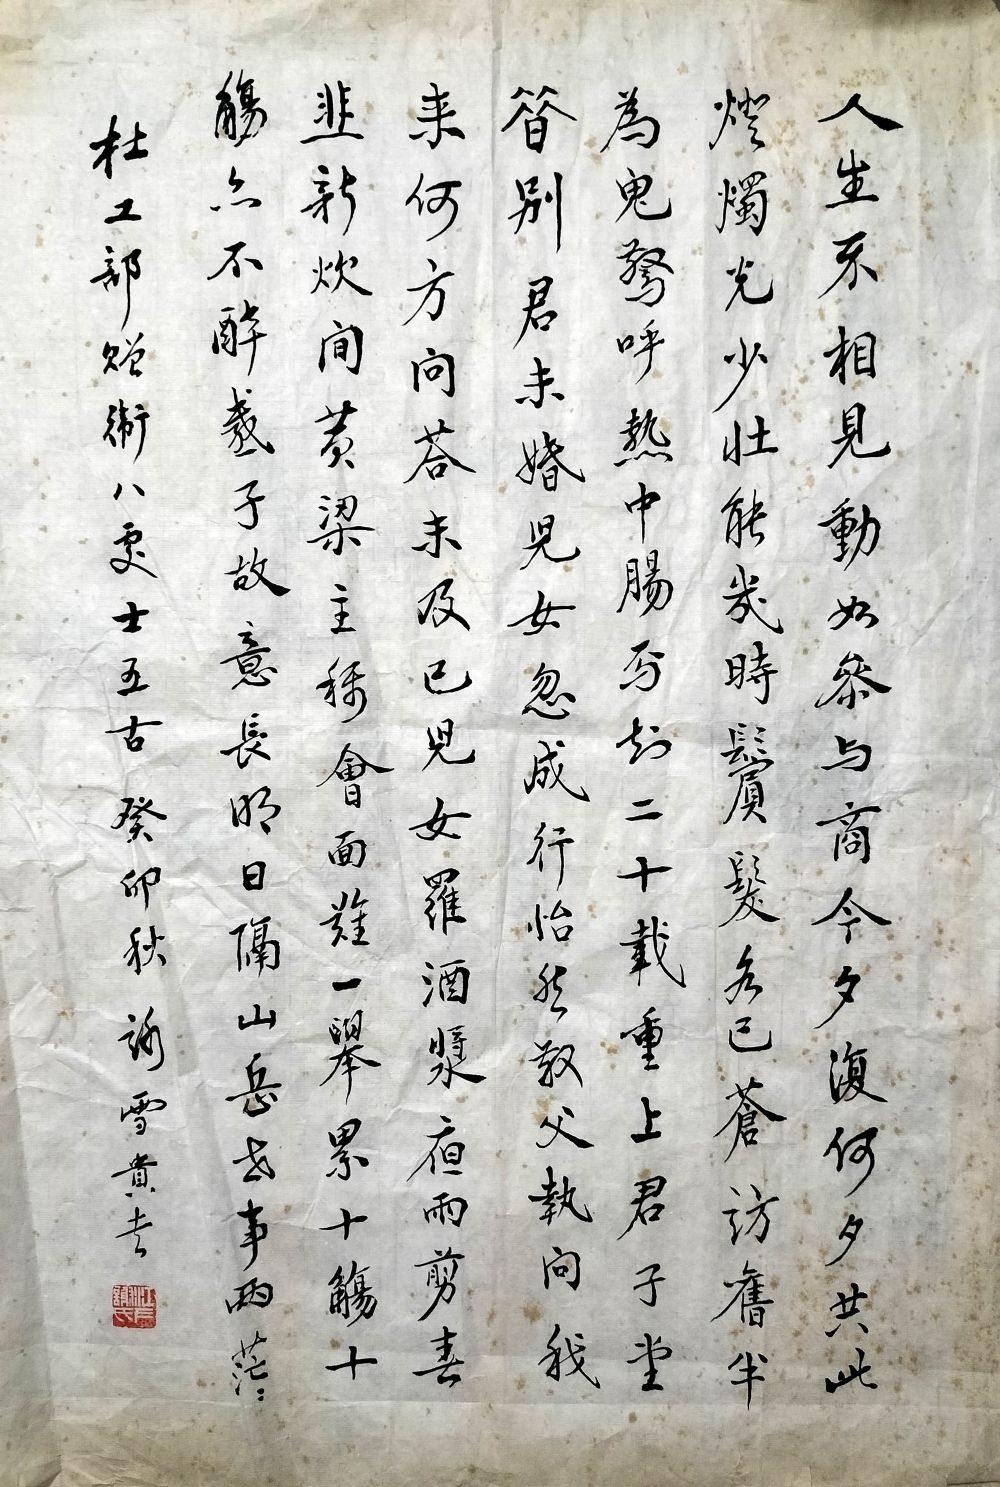 人生不相見動如參与商今夕復何夕共此
燈燭光少壯能幾時鬢髮各已蒼訪舊半
為鬼驚呼熱中腸焉知二十載重上君子堂
昝別君未婚児女忽成行怡然敬父執问我
来何方问荅未及已児女羅酒漿夜雨剪春
韭新炊间黄梁主称會面難一舉累十觴十
觴亦不醉感子故意長明日隔山岳世事两茫々
杜工部贈衛八處士五古 癸卯秋 謝雪貴书